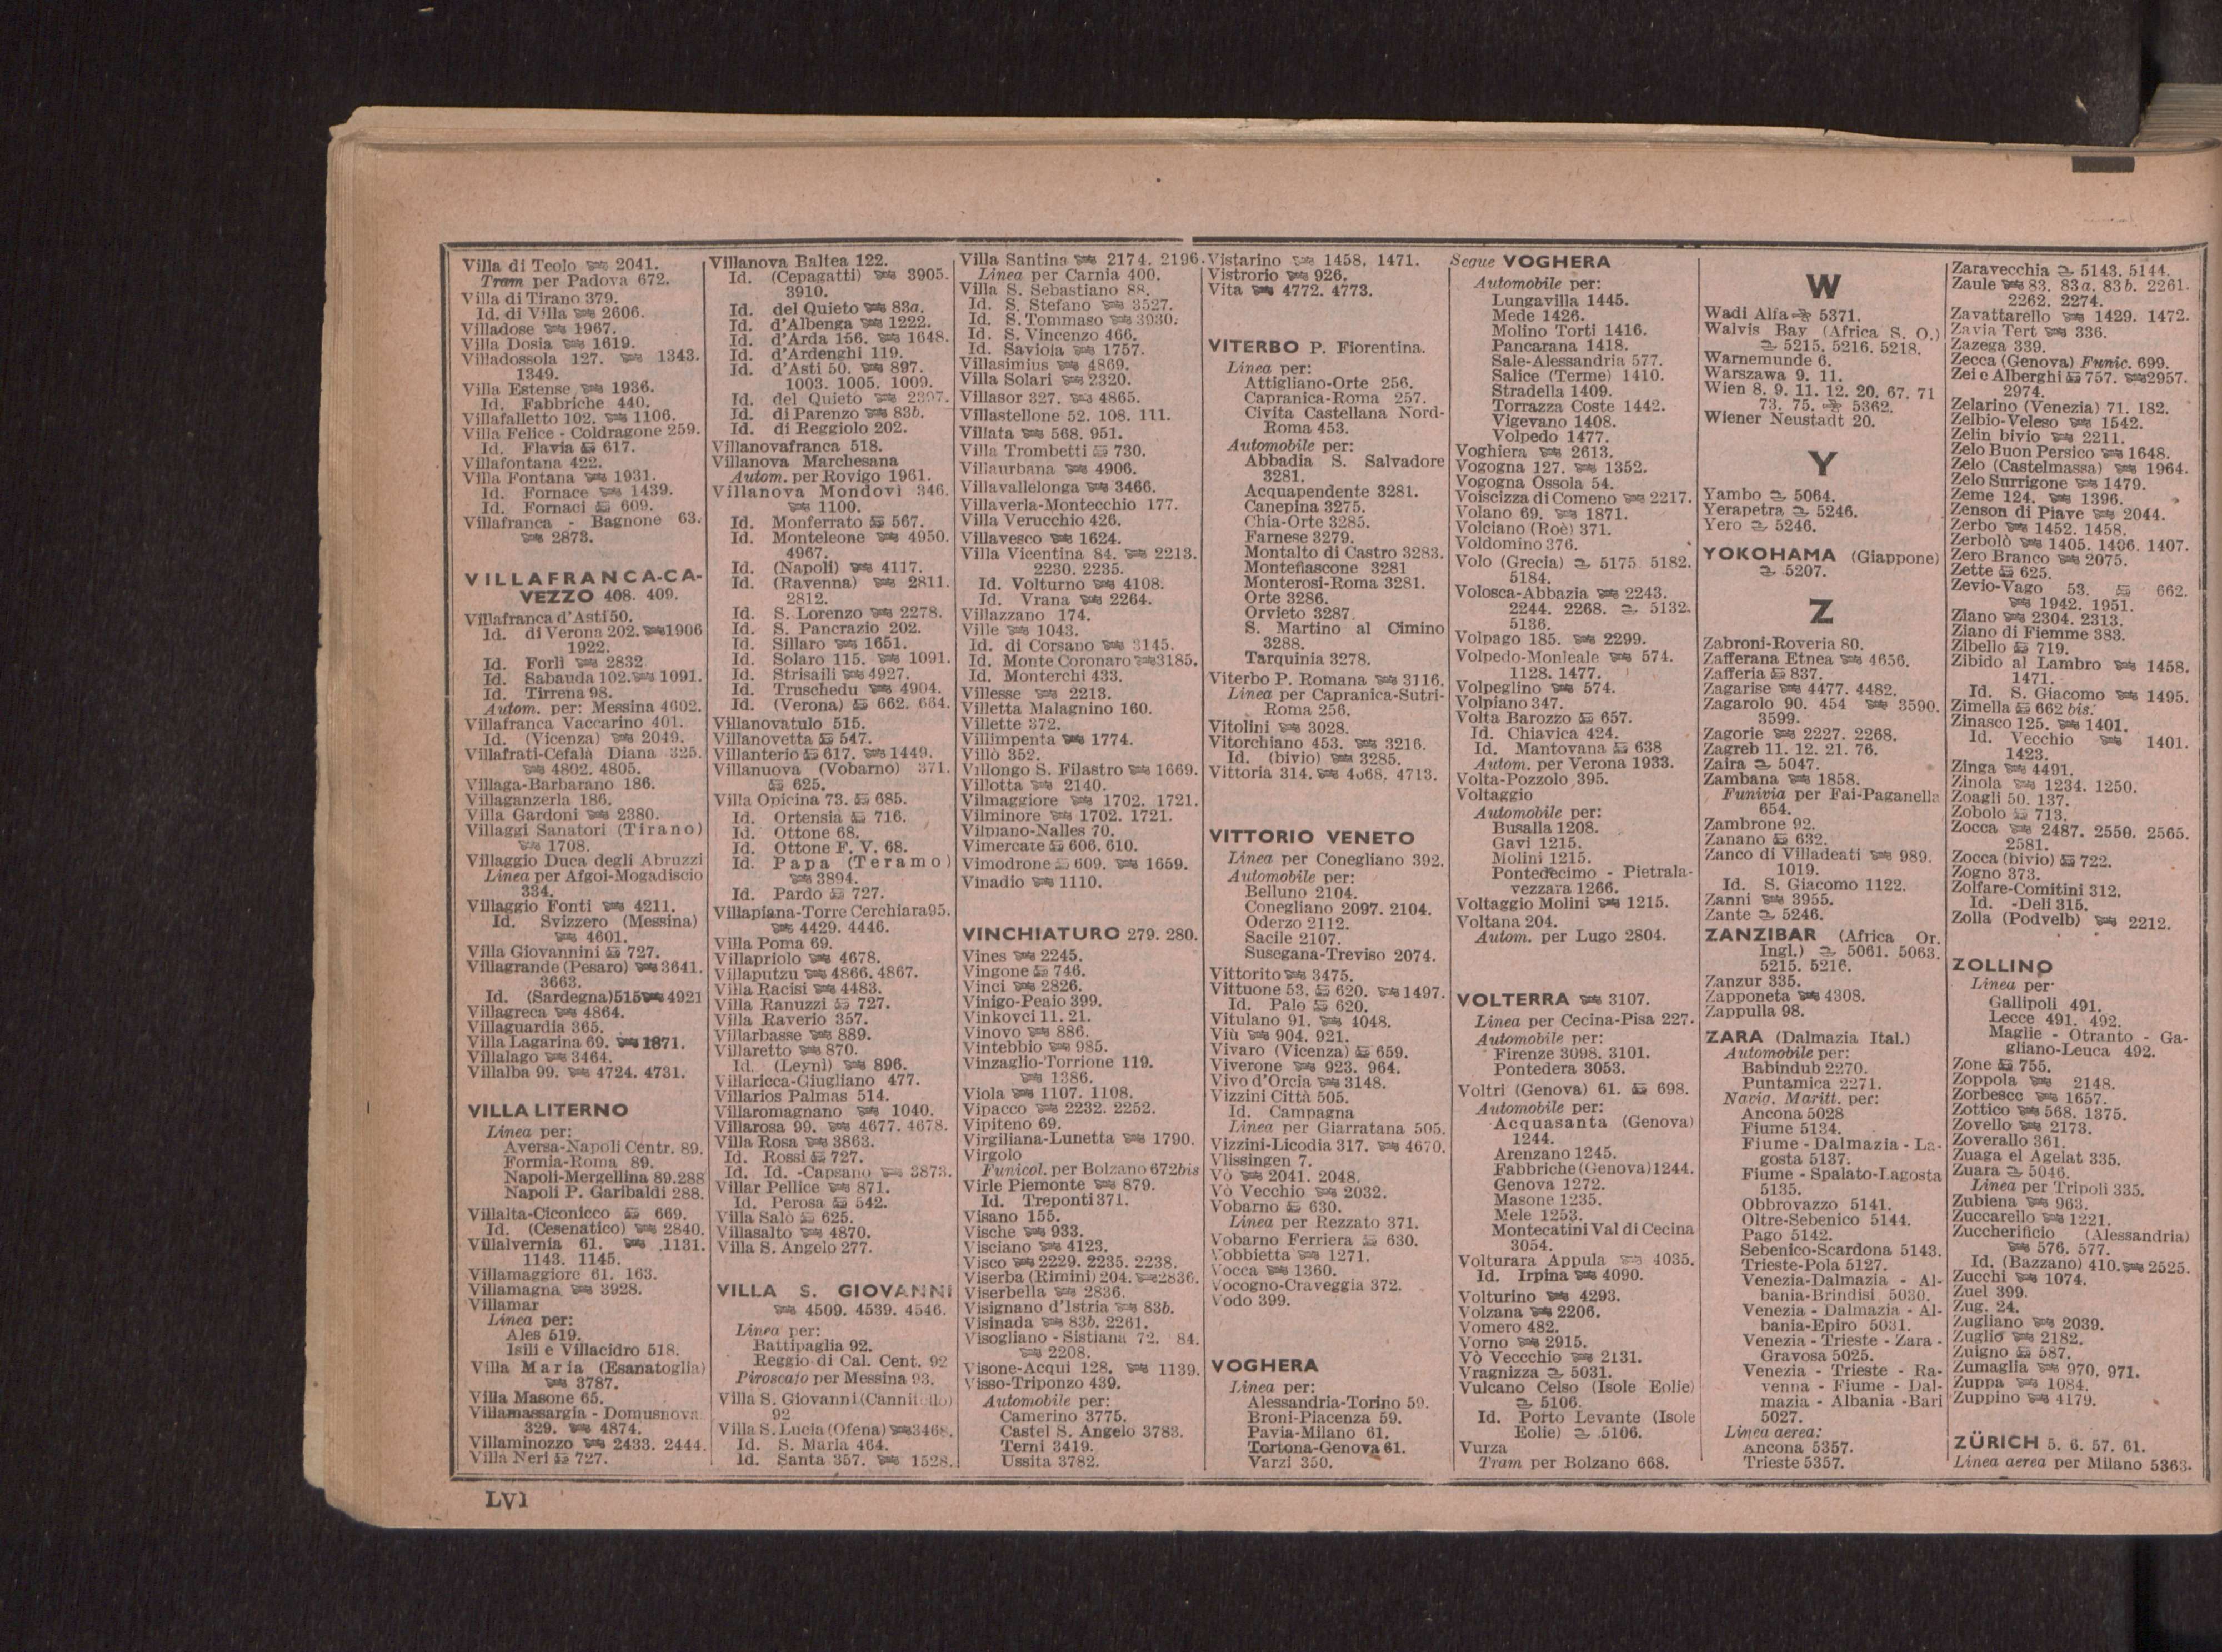 Villa di Teolo 2041.
Tram per Padova 672.
Villa di Tirano 379.
Id. di Villa 2606.
Villadose 1967.
Villa Dosia 1619.
Villadossola 127. 1343.
1349.
Villa Estense 1936.
Id. Fabbriche 440.
Villafalletto 102. 1106.
Villa Felice - Coldragone 259.
Id. Flavia 617.
Villafontana 422.
Villa Fontana 1931.
Id. Fornace 1439.
Id. Fornaci 609.
Villafranca - Bagnone 63.
2873.
VILLAFRANCA-CA-
VEZZO 408. 409.
Villafranca d'Asti 50.
Id. di Verona 202. 1906
1922.
Id. Forlì 2832
Id. Sabauda 102. 1091.
Id. Tirrena 98.
Autom. per: Messina 4602.
Villafranca Vaccarino 401.
Id. (Vicenza) 2049.
Villafrati-Cefalà Diana 325.
4802. 4805.
Villaga-Barbarano 186.
Villaganzerla 186.
Villa Gardoni 2380.
Villaggi Sanatori (Tirano)
1708.
Villaggio Duca degli Abruzzi
Linea per Afgoi-Mogadiscio
334.
Villaggio Fonti 4211.
Id. Svizzero (Messina)
4601.
Villa Giovannini 727.
Villagrande (Pesaro) 3641.
3663.
Id. (Sardegna) 515 4921
Villagreca 4864.
Villaguardia 365.
Villa Lagarina 69. 1871.
Villalago 3464.
Villalba 99. 4724. 4731.
VILLA LITERNO
Linea per:
Aversa-Napoli Centr. 89.
Formia-Roma 89.
Napoli-Mergellina 89.288
Napoli P. Garibaldi 288.
Villalta-Ciconicco 669.
Id. (Cesenatico) 2840.
Villalvernia 61. 1131.
1143. 1145.
Villamaggiore 61. 163.
Villamagna 3928.
Villamar
Linea per:
Ales 519.
Isili e Villacidro 518.
Villa Maria (Esanatoglia)
3787.
Villa Masone 65.
Villamassargia - Domusnova
329. 4874.
Villaminozzo 2433. 2444.
Villa Neri 727.
Villanova Baltea 122.
Id. (Cepagatti) 3905.
3910.
Id. del Quieto 83a.
Id. d'Albenga 1222.
Id. d'Arda 156. 1648.
Id. d'Ardenghi 119.
Id. d'Asti 50. 897.
1003. 1005. 1009.
Id. del Quieto 2397.
Id. di Parenzo 83b.
Id. di Reggiolo 202.
Villanovafranca 518.
Villanova Marchesana
Autom. per Rovigo 1961.
Villanova Mondovì 346.
1100.
Id. Monferrato 567.
Id. Monteleone 4950.
4967.
Id. (Napoli) 4117.
Id. (Ravenna) 2811.
2812.
Id. S. Lorenzo 2278.
Id. S. Pancrazio 202.
Id. Sillaro 1651.
Id. Solaro 115. 1091.
Id. Strisaili 4927.
Id. Truschedu 4904.
Id. (Verona) 662. 664.
Villanovatulo 515.
Villanovetta 547.
Villanterio 617. 1449.
Villanuova (Vobarno) 371.
625.
Villa Opicina 73. 685.
Id. Ortensia 716.
Id. Ottone 68.
Id. Ottone F. V. 68.
Id. Papa (Teramo)
3894.
Id. Pardo 727.
Villapiana-Torre Cerchiara 95.
4429. 4446.
Villa Poma 69.
Villapriolo 4678.
Villaputzu 4866. 4867.
Villa Racisi 4483.
Villa Ranuzzi 727.
Villa Raverio 357.
Villarbasse 889.
Villaretto 870.
Id. (Leynì) 896.
Villaricca-Giugliano 477.
Villarios Palmas 514.
Villaromagnano 1040.
Villarosa 99. 4677. 4678.
Villa Rosa 3863.
Id. Rossi 727.
Id. Id. -Capsano 3873.
Villar Pellice 871.
Id. Perosa 542.
Villa Salò 625.
Villasalto 4870.
Villa S. Angelo 277.
VILLA S. GIOVANNI
4509. 4539. 4546.
Linea per:
Battipaglia 92.
Reggio di Cal. Cent. 92
Piroscafo per Messina 93.
Villa S. Giovanni (Cannitello)
92
Villa S. Lucia (Ofena) 3468.
Id. S. Maria 464.
Id. Santa 357. 1528.
Villa Santina 2174. 2196.
Linea per Carnia 400.
Villa S. Sebastiano 88.
Id. S. Stefano 3527.
Id. S. Tommaso 3930.
Id. S. Vincenzo 466.
Id. Saviola 1757.
Villasimius 4869.
Villa Solari 2320.
Villasor 327. 4865.
Villastellone 52. 108. 111.
Villata 568. 951.
Villa Trombetti 730.
Villaurbana 4906.
Villavallelonga 3466.
Villaveria-Montecchio 177.
Villa Verucchio 426.
Villavesco 1624.
Villa Vicentina 84. 2213.
2230. 2235.
Id. Volturno 4108.
Id. Vrana 2264.
Villazzano 174.
Ville 1043.
Id. di Corsano 3145.
Id. Monte Coronaro 3185.
Id. Monterchi 433.
Villesse 2213.
Villetta Malagnino 160.
Villette 372.
Villimpenta 1774.
Villò 352.
Villongo S. Filastro 1669.
Villotta 2140.
Vilmaggiore 1702. 1721.
Vilminore 1702. 1721.
Vilpiano-Nalles 70.
Vimercate 606. 610.
Vimodrone 609. 1659.
Vinadio 1110.
VINCHIATURO 279. 280.
Vines 2245.
Vingone 746.
Vinci 2826.
Vinigo-Peaio 399.
Vinkovci 11. 21.
Vinovo 886.
Vintebbio 985.
Vinzaglio-Torrione 119.
1386.
Viola 1107. 1108.
Vipacco 2232. 2252.
Vipiteno 69.
Virgiliana-Lunetta 1790.
Virgolo
Funicol. per Bolzano 672bis
Virle Piemonte 879.
Id. Treponti 371.
Visano 155.
Vische 933.
Visciano 4123.
Visco 2229. 2235. 2238.
Viserba (Rimini) 204. 2836.
Viserbella 2836.
Visignano d'Istria 83b.
Visinada 83b. 2261.
Visogliano - Sistiana 72. 84.
2208.
Visone-Acqui 128. 1139.
Visso-Triponzo 439.
Automobile per:
Camerino 3775.
Castel S. Angelo 3783.
Terni 3419.
Ussita 3782.
Vistarino 1458. 1471.
Vistrorio 926.
Vita 4772. 4773.
VITERBO P. Fiorentina.
Linea per:
Attigliano-Orte 256.
Capranica-Roma 257.
Civita Castellana Nord-
Roma 453.
Automobile per:
Abbadia S. Salvadore
3281.
Acquapendente 3281.
Canepina 3275.
Chia-Orte 3285.
Farnese 3279.
Montalto di Castro 3283.
Montefiascone 3281
Monterosi-Roma 3281.
Orte 3286.
Orvieto 3287.
S. Martino al Cimino
3288.
Tarquinia 3278.
Viterbo P. Romana 3116.
Linea per Capranica-Sutri-
Roma 256.
Vitolini 3028.
Vitorchiano 453. 3216.
Id. (bivio) 3285.
Vittoria 314. 4713.
VITTORIO VENETO
Linea per Conegliano 392.
Automobile per:
Belluno 2104.
Conegliano 2097. 2104.
Oderzo 2112.
Sacile 2107.
Susegana-Treviso 2074.
Vittorito 3475.
Vittuone 53. 620. 1497.
Id. Palo 620.
Vitulano 91. 4048.
Viù 904. 921.
Vivaro (Vicenza) 659.
Viverone 923. 964.
Vivo d'Orcia 3148.
Vizzini Città 505.
Id. Campagna
Linea per Giarratana 505.
Vizzini-Licodia 317. 4670.
Vlissingen 7.
Vò 2041. 2048.
Vò Vecchio 2032.
Vobarno 630.
Linea per Rezzato 371.
Vobarno Ferriera 630.
Vobbietta 1271.
Vocca 1360.
Vocogno-Craveggia 372.
Vodo 399.
VOGHERA
Linea per:
Alessandria-Torino 59.
Broni-Piacenza 59.
Pavia-Milano 61.
Tortona-Genova 61.
Varzi 350.
Segue VOGHERA
Automobile per:
Lungavilla 1445.
Mede 1426.
Molino Torti 1416.
Pancarana 1418.
Sale-Alessandria 577.
Salice (Terme) 1410.
Stradella 1409.
Torrazza Coste 1442.
Vigevano 1408.
Volpedo 1477.
Voghiera 2613.
Vogogna 127. 1352.
Vogogna Ossola 54.
Voiscizza di Comeno 2217.
Volano 69. 1871.
Volciano (Roè) 371.
Voldomino 376.
Volo (Grecia) 5175 5182.
5184.
Volosca-Abbazia 2243.
2244. 2268. 5132.
5136.
Volpago 185. 2299.
Volpedo-Monleale 574.
1128. 1477.
Volpeglino 574.
Volpiano 347.
Volta Barozzo 657.
Id. Chiavica 424.
Id. Mantovana 638
Autom. per Verona 1933.
Volta-Pozzolo 395.
Voltaggio
Automobile per:
Busalla 1208.
Gavi 1215.
Molini 1215.
Pontedecimo - Pietrala-
vezzara 1266.
Voltaggio Molini 1215.
Voltana 204.
Autom. per Lugo 2804.
VOLTERRA 3107.
Linea per Cecina-Pisa 227.
Automobile per:
Firenze 3098. 3101.
Pontedera 3053.
Voltri (Genova) 61. 698.
Automobile per:
Acquasanta (Genova)
1244.
Arenzano 1245.
Fabbriche (Genova) 1244.
Genova 1272.
Masone 1235.
Mele 1253.
Montecatini Val di Cecina
3054.
Volturara Appula 4035.
Id. Irpina 4090.
Volturino 4293.
Volzana 2206.
Vomero 482.
Vorno 2915.
Vò Veccchio 2131.
Vragnizza 5031.
Vulcano Celso (Isole Eolie)
5106.
Id. Porto Levante (Isole
Eolie) 5106.
Vurza
Tram per Bolzano 668.
W
Wadi Alfa 5371.
Walvis Bay (Africa S. O.)
5215. 5216. 5218.
Warnemunde 6.
Warszawa 9. 11.
Wien 8. 9. 11. 12. 20. 67. 71
73. 75. 5362.
Wiener Neustadt 20.
Y
Yambo 5064.
Yerapetra 5246.
Yero 5246.
YOKOHAMA (Giappone)
5207.
Z
Zabroni-Roveria 80.
Zafferana Etnea 4656.
Zafferia 837.
Zagarise 4477. 4482.
Zagarolo 90. 454 3590.
3599.
Zagorie 2227. 2268.
Zagreb 11. 12. 21. 76.
Zaira 5047.
Zambana 1858.
Funivia per Fai-Paganella
654.
Zambrone 92.
Zanano 632.
Zanco di Villadeati 989.
1019.
Id. S. Giacomo 1122.
Zanni 3955.
Zante 5246.
ZANZIBAR (Africa Or.
Ingl.) 5061. 5063.
5215. 5216.
Zanzur 335.
Zapponeta 4308.
Zappulla 98.
ZARA (Dalmazia Ital.)
Automobile per:
Babindub 2270.
Puntamica 2271.
Navig. Maritt. per:
Ancona 5028
Fiume 5134.
Fiume - Dalmazia - La-
gosta 5137.
Fiume - Spalato-Lagosta
5135.
Obbrovazzo 5141.
Oltre-Sebenico 5144.
Pago 5142.
Sebenico-Scardona 5143.
Trieste-Pola 5127.
Venezia-Dalmazia - Al-
bania-Brindisi 5030.
Venezia - Dalmazia - Al-
bania-Epiro 5031.
Venezia - Trieste - Zara -
Gravosa 5025.
Venezia - Trieste - Ra-
venna - Fiume - Dal-
mazia - Albania -Bari
5027.
Linea aerea:
Ancona 5357.
Trieste 5357.
Zaravecchia 5143. 5144.
Zaule 83. 83a. 83b. 2261.
2262. 2274.
Zavattarello 1429. 1472.
Zavia Tert 336.
Zazega 339.
Zecca (Genova) Funic. 699.
Zei e Alberghi 757. 2957.
2974.
Zelarino (Venezia) 71. 182.
Zelbio-Veleso 1542.
Zelin bivio 2211.
Zelo Buon Persico 1648.
Zelo (Castelmassa) 1964.
Zelo Surrigone 1479.
Zeme 124. 1396.
Zenson di Piave 2044.
Zerbo 1452. 1458.
Zerbolò 1405. 1406. 1407.
Zero Branco 2075.
Zette 625.
Zevio-Vago 53. 662.
1942. 1951.
Ziano 2304. 2313.
Ziano di Fiemme 383.
Zibello 719.
Zibido al Lambro 1458.
1471.
Id. S. Giacomo 1495.
Zimella 662 bis.
Zinasco 125. 1401.
Id. Vecchio 1401.
1423.
Zinga 4491.
Zinola 1234. 1250.
Zoagli 50. 137.
Zobolo 713.
Zocca 2487. 2550. 2565.
2581.
Zocca (bivio) 722.
Zogno 373.
Zolfare-Comitini 312.
Id. -Deli 315.
Zolla (Podvelb) 2212.
ZOLLINO
Linea per
Gallipoli 491.
Lecce 491. 492.
Maglie - Otranto - Ga-
gliano-Leuca 492.
Zone 755.
Zoppola 2148.
Zorbesco 1657.
Zottico 568. 1375.
Zovello 2173.
Zoverallo 361.
Zuaga el Agelat 335.
Zuara 5046.
Linea per Tripoli 335.
Zubiena 963.
Zuccarello 1221.
Zuccherificio (Alessandria)
576. 577.
Id. (Bazzano) 410. 2525.
Zucchi 1074.
Zuel 399.
Zug. 24.
Zugliano 2039.
Zuglio 2182.
Zuigno 587.
Zumaglia 970. 971.
Zuppa 1084.
Zuppino 4179.
ZÜRICH 5. 6. 57. 61.
Linea aerea per Milano 5363.
LVI